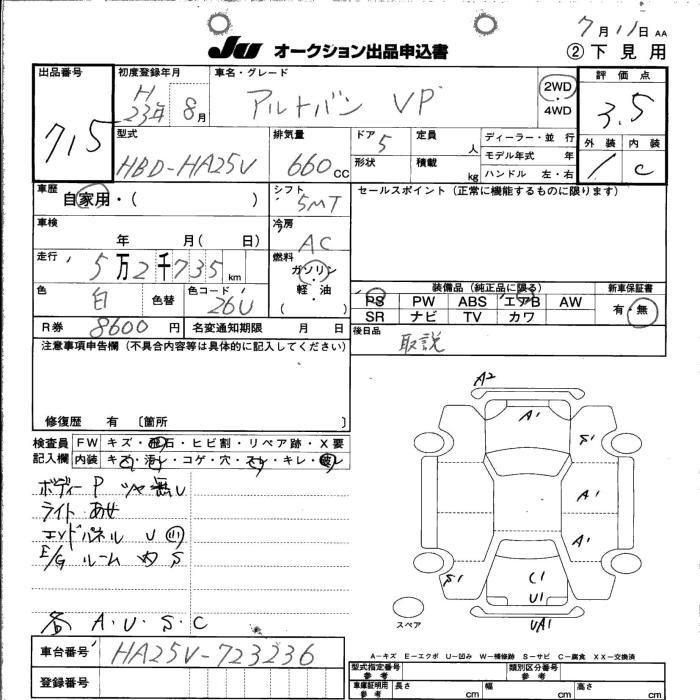 7月11日 AA
JU オークション出品申込書 ②下見用
出品番号 初度登録年月 車名・グレード 2WD 4WD 評価点
715 H 23年 8月 アルトバン VP 3.5
型式 排気量 ドア 定員 人 ディーラー・並行 外装 内装
HBD-HA25V 660CC 5 形状 積載 kg モデル年式 年 1 C
ハンドル 左・右
車歴 自家用・( ) シフト 5MT セールスポイント(正常に機能するものに限ります)
車検 年 月( 日) 冷房 AC
走行 5万2千735km 燃料 ガソリン・軽・油 ( )
色 白 色替 色コード 26U
装備品(純正品に限る) 新車保証書
PS PW ABS エアB AW 有・無
SR ナビ TV カワ
R券 8600円 名変通知期限 月 日 後日品 取説
注意事項申告欄(不具合内容等は具体的に記入してください)
修復歴 有 〔箇所 〕
検査員記入欄 FW キズ・飛石・ヒビ割・リペア跡・X要
内装 キズ・汚れ・コゲ・穴・スレ・キレ・破レ
ボディー P
ライト あせ
エンドパネル U
E/G ルーム 内 S
各 A.U.S.C
A2
A1
S1
A1
A1
S1
C1
U1
UA1
スペア
A-キズ E-エクボ U-凹み W-補修跡 S-サビ C-腐食 XX-交換済
車台番号 HA25V-723236
登録番号
型式指定番号 参考 類別区分番号 参考
車庫証明用 参考 長さ cm 幅 cm 高さ cm